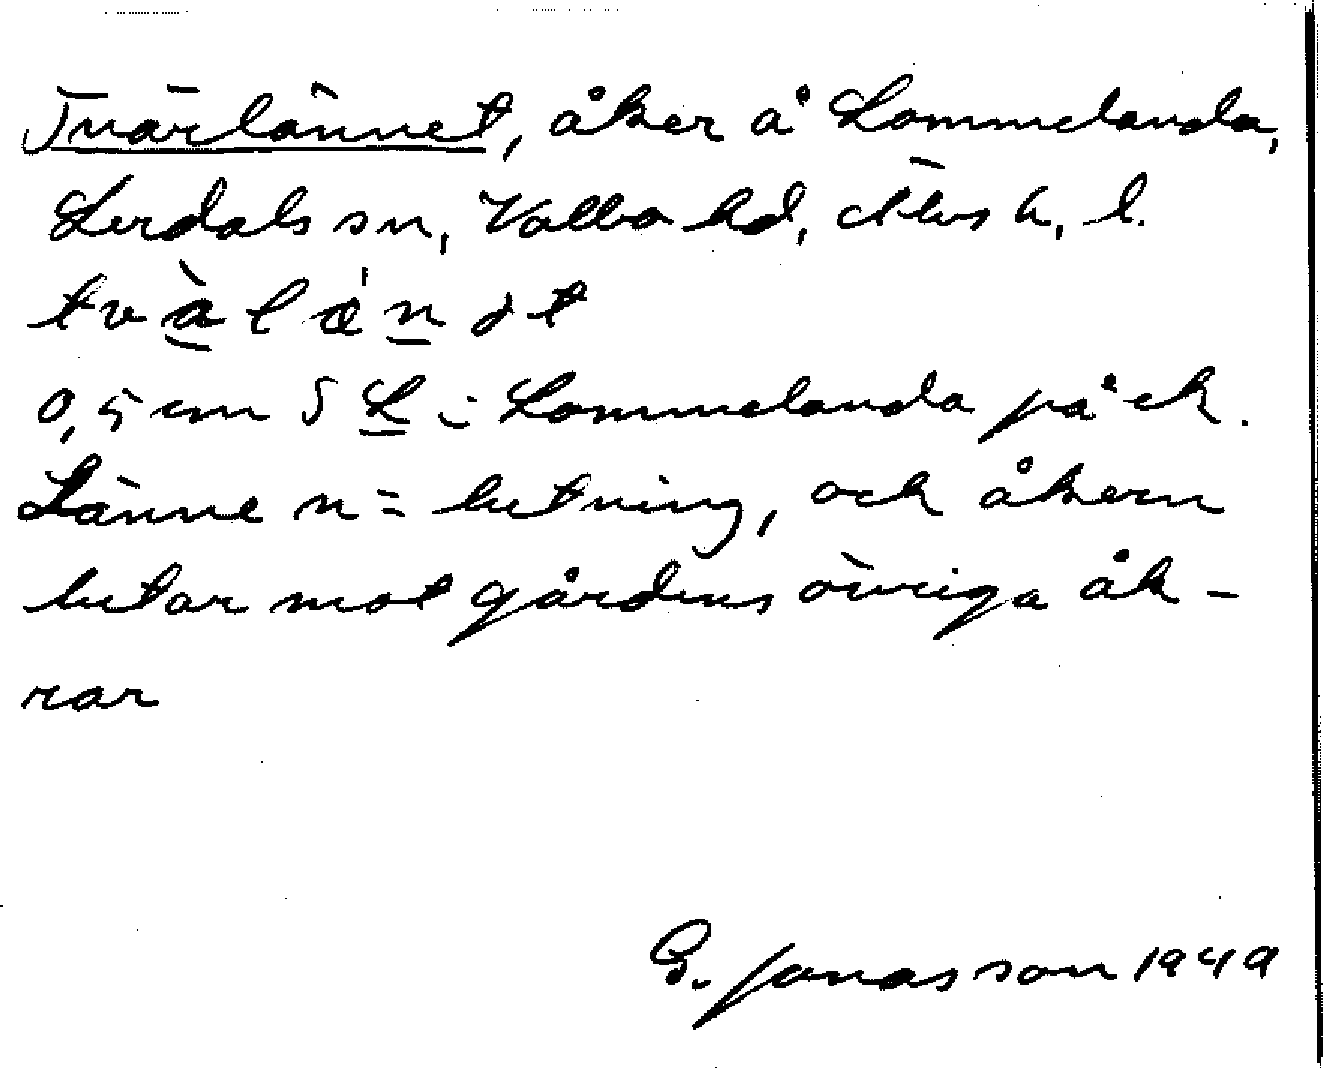 Tvärlännet, åker å Lommelanda,
Lerdals sn, Valbo hd, Älvsb. l.
tvàlǽnət
0,5 cm S L i Lommelanda på ek.
Länne n = lutning, och åkern
lutar mot gårdens övriga åk-
rar
G. Jonasson 1949